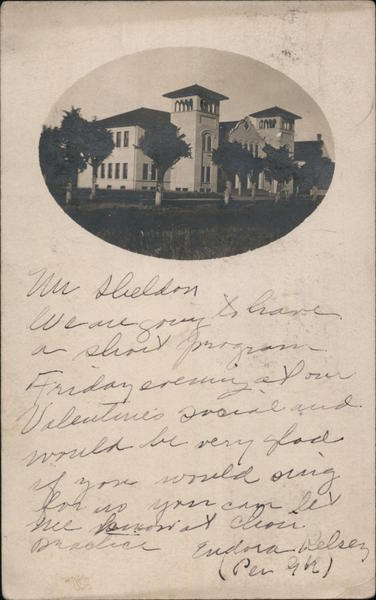 Mr Sheldon
We are going to have
a short program
Friday evening at our
Valentines social and
would be very glad
if you would sing
for us you can let
me know at choir
practice Eudora Kelsey
(Per GK)